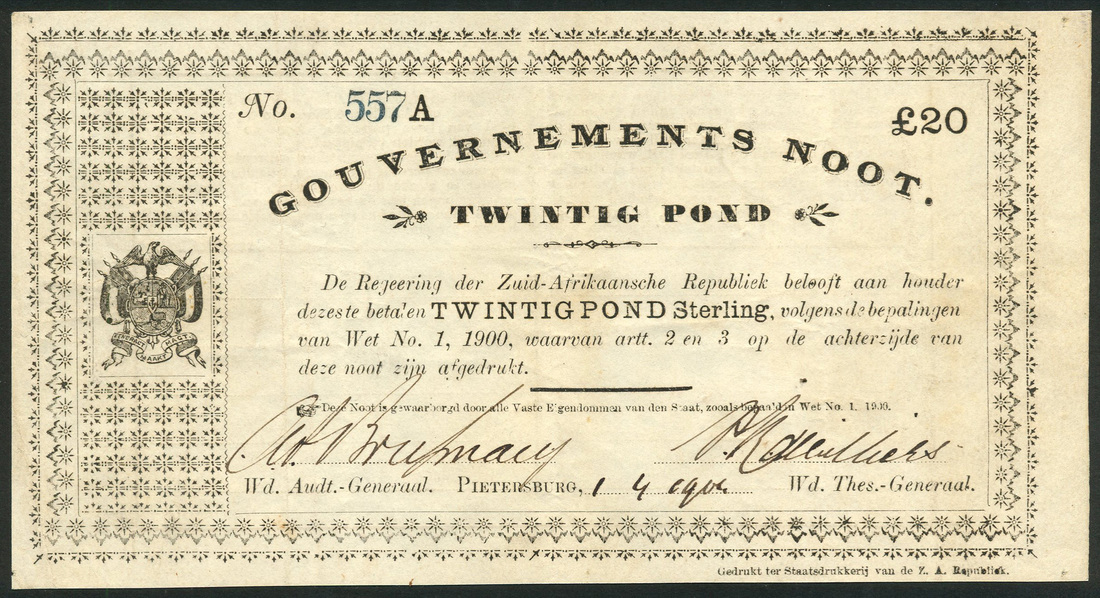 No. 557 A
£20
GOUVERNEMENTS NOOT.
TWINTIG POND
De Regeering der Zuid-Afrikaansche Republiek belooft aan houder
dezes te betalen TWINTIG POND Sterling, volgens de bepalingen
van Wet No. 1, 1900, waarvan artt. 2 en 3 op de achterzijde van
deze noot zijn afgedrukt.
EENDRAGT MAAKT MAGT
Deze Noot is gewaarborgd door alle Vaste Eigendommen van den Staat, zooals bepaald in Wet No. 1. 1900.
Wd. Audt.-Generaal. PIETERSBURG, 1 4 Wd. Thes.-Generaal.
Gedrukt ter Staatsdrukkerij van de Z. A. Republiek.